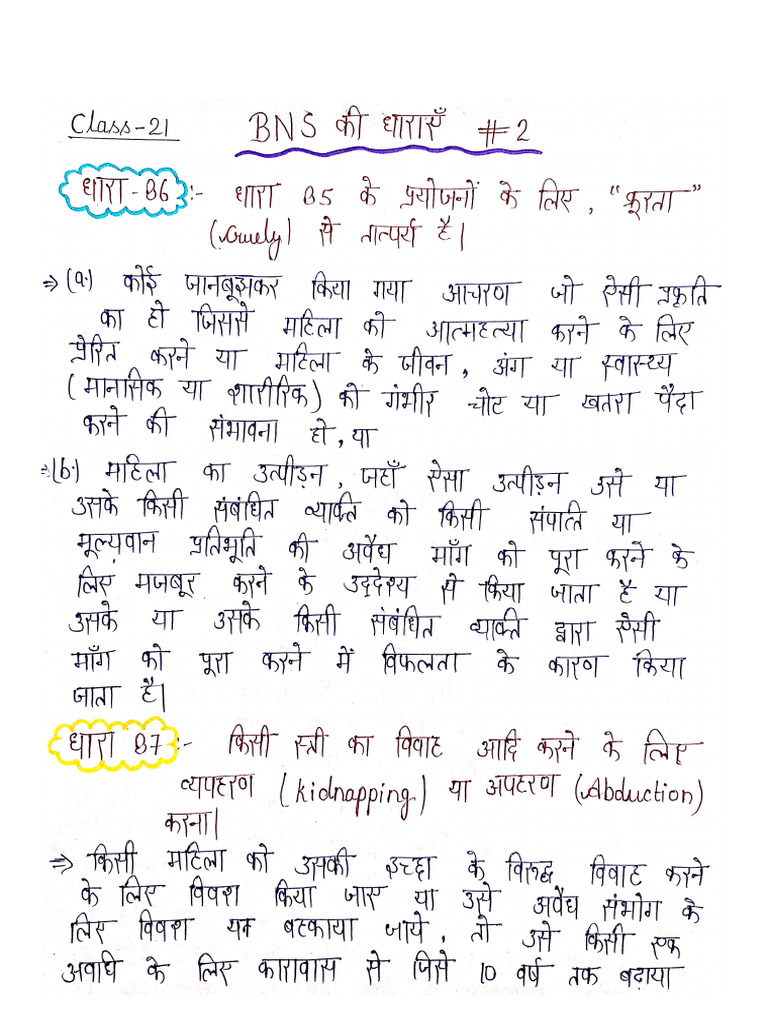 Class-21 BNS की धाराएँ #2
धारा-86 :- धारा 85 के प्रयोजनों के लिए, "क्रूरता"
(cruely) से तात्पर्य है।
⇒ (a.) कोई जानबूझकर किया गया आचरण जो ऐसी प्रकृति
का हो जिससे महिला को आत्महत्या करने के लिए
प्रेरित करने या महिला के जीवन, अंग या स्वास्थ्य
(मानसिक या शारीरिक) को गंभीर चोट या खतरा पैदा
करने की संभावना हो, या
⇒ (b.) महिला का उत्पीड़न, जहाँ ऐसा उत्पीड़न उसे या
उसके किसी संबंधित व्यक्ति को किसी संपत्ति या
मूल्यवान प्रतिभूति की अवैध माँग को पूरा करने के
लिए मजबूर करने के उद्देश्य से किया जाता है या
उसके या उसके किसी संबंधित व्यक्ति द्वारा ऐसी
माँग को पूरा करने में विफलता के कारण किया
जाता है।
धारा 87 :- किसी स्त्री का विवाह आदि करने के लिए
व्यपहरण (kidnapping) या अपहरण (Abduction)
करना।
⇒ किसी महिला को उसकी इच्छा के विरुद्ध विवाह करने
के लिए विवश किया जाए या उसे अवैध संभोग के
लिए विवश या बहकाया जाये, तो उसे किसी एक
अवधि के लिए कारावास से जिसे 10 वर्ष तक बढ़ाया